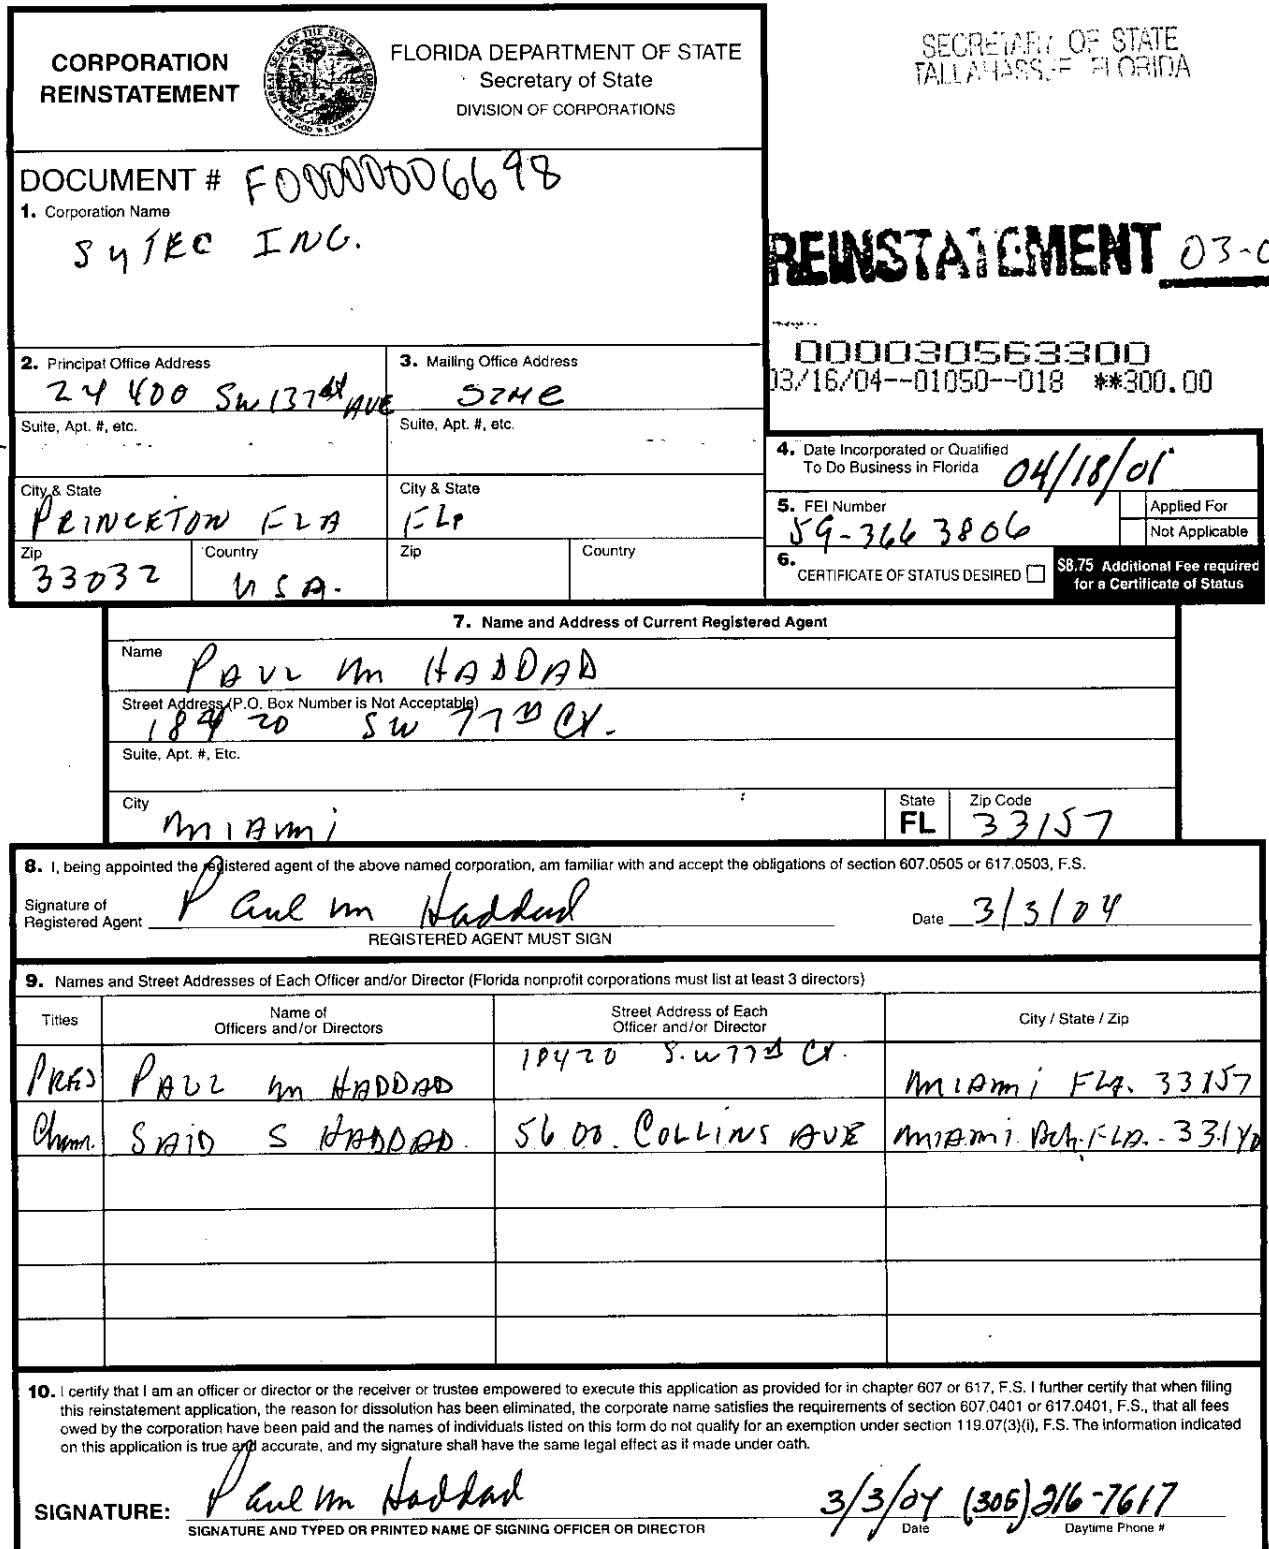 CORPORATION
REINSTATEMENT
FLORIDA DEPARTMENT OF STATE
Secretary of State
DIVISION OF CORPORATIONS
SECRETARY OF STATE
TALLAHASSEE FLORIDA
DOCUMENT # F00000006698
1. Corporation Name
SyTEC INC.
REINSTATEMENT 03-0
000030563300
03/16/04--01050--018 **300.00
2. Principal Office Address
24400 SW 137 AVE
3. Mailing Office Address
Suite, Apt. #, etc.
Suite, Apt. #, etc.
4. Date Incorporated or Qualified
To Do Business in Florida 04/18/01
City & State
PRINCETON FLA
City & State
5. FEI Number
59-3663806
Applied For
Not Applicable
Zip
33032
Country
USA.
Zip
Country
6. CERTIFICATE OF STATUS DESIRED
$8.75 Additional Fee required
for a Certificate of Status
7. Name and Address of Current Registered Agent
Name
PAUL M HADDAD
Street Address (P.O. Box Number is Not Acceptable)
18420 SW 77 Ct.
Suite, Apt. #, Etc.
City
MIAMI
State
FL
Zip Code
33157
8. I, being appointed the registered agent of the above named corporation, am familiar with and accept the obligations of section 607.0505 or 617.0503, F.S.
Signature of
Registered Agent Paul M Haddad
Date 3/3/04
REGISTERED AGENT MUST SIGN
9. Names and Street Addresses of Each Officer and/or Director (Florida nonprofit corporations must list at least 3 directors)
Titles
Name of
Officers and/or Directors
Street Address of Each
Officer and/or Director
City / State / Zip
PRES PAUL M HADDAD 18420 S.W 77 Ct. MIAMI FLA. 33157
Chmn. SAID S HADDAD. 5600. COLLINS AVE MIAMI Bch. FLA. 33140
10. I certify that I am an officer or director or the receiver or trustee empowered to execute this application as provided for in chapter 607 or 617, F.S. I further certify that when filing
this reinstatement application, the reason for dissolution has been eliminated, the corporate name satisfies the requirements of section 607.0401 or 617.0401, F.S., that all fees
owed by the corporation have been paid and the names of individuals listed on this form do not qualify for an exemption under section 119.07(3)(i), F.S. The information indicated
on this application is true and accurate, and my signature shall have the same legal effect as it made under oath.
SIGNATURE: Paul M Haddad 3/3/04 (305)216-7617
SIGNATURE AND TYPED OR PRINTED NAME OF SIGNING OFFICER OR DIRECTOR
Date
Daytime Phone #